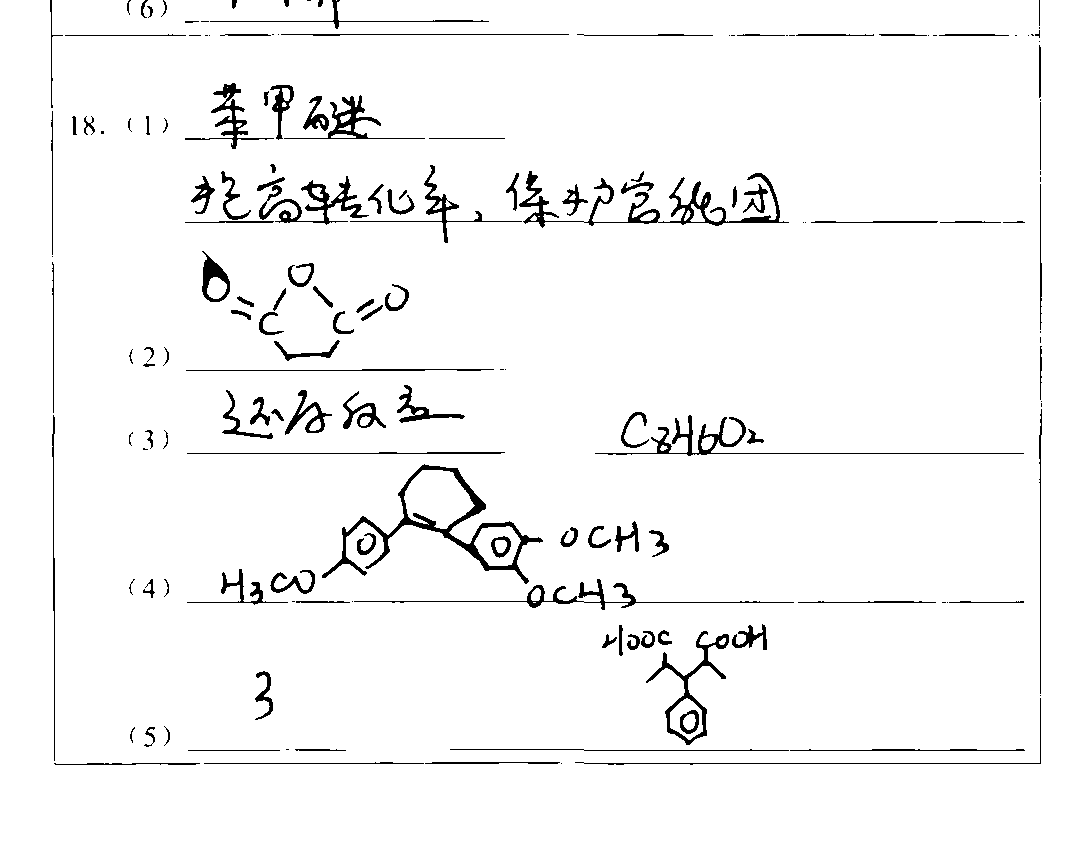 (6)
18. (1) 苯甲醚
提高转化率，保护官能团
O O
C C O
(2)
(3) 还原反应 C8H6O2
OCH3
(4) H3CO OCH3
HOOC COOH
3
(5)